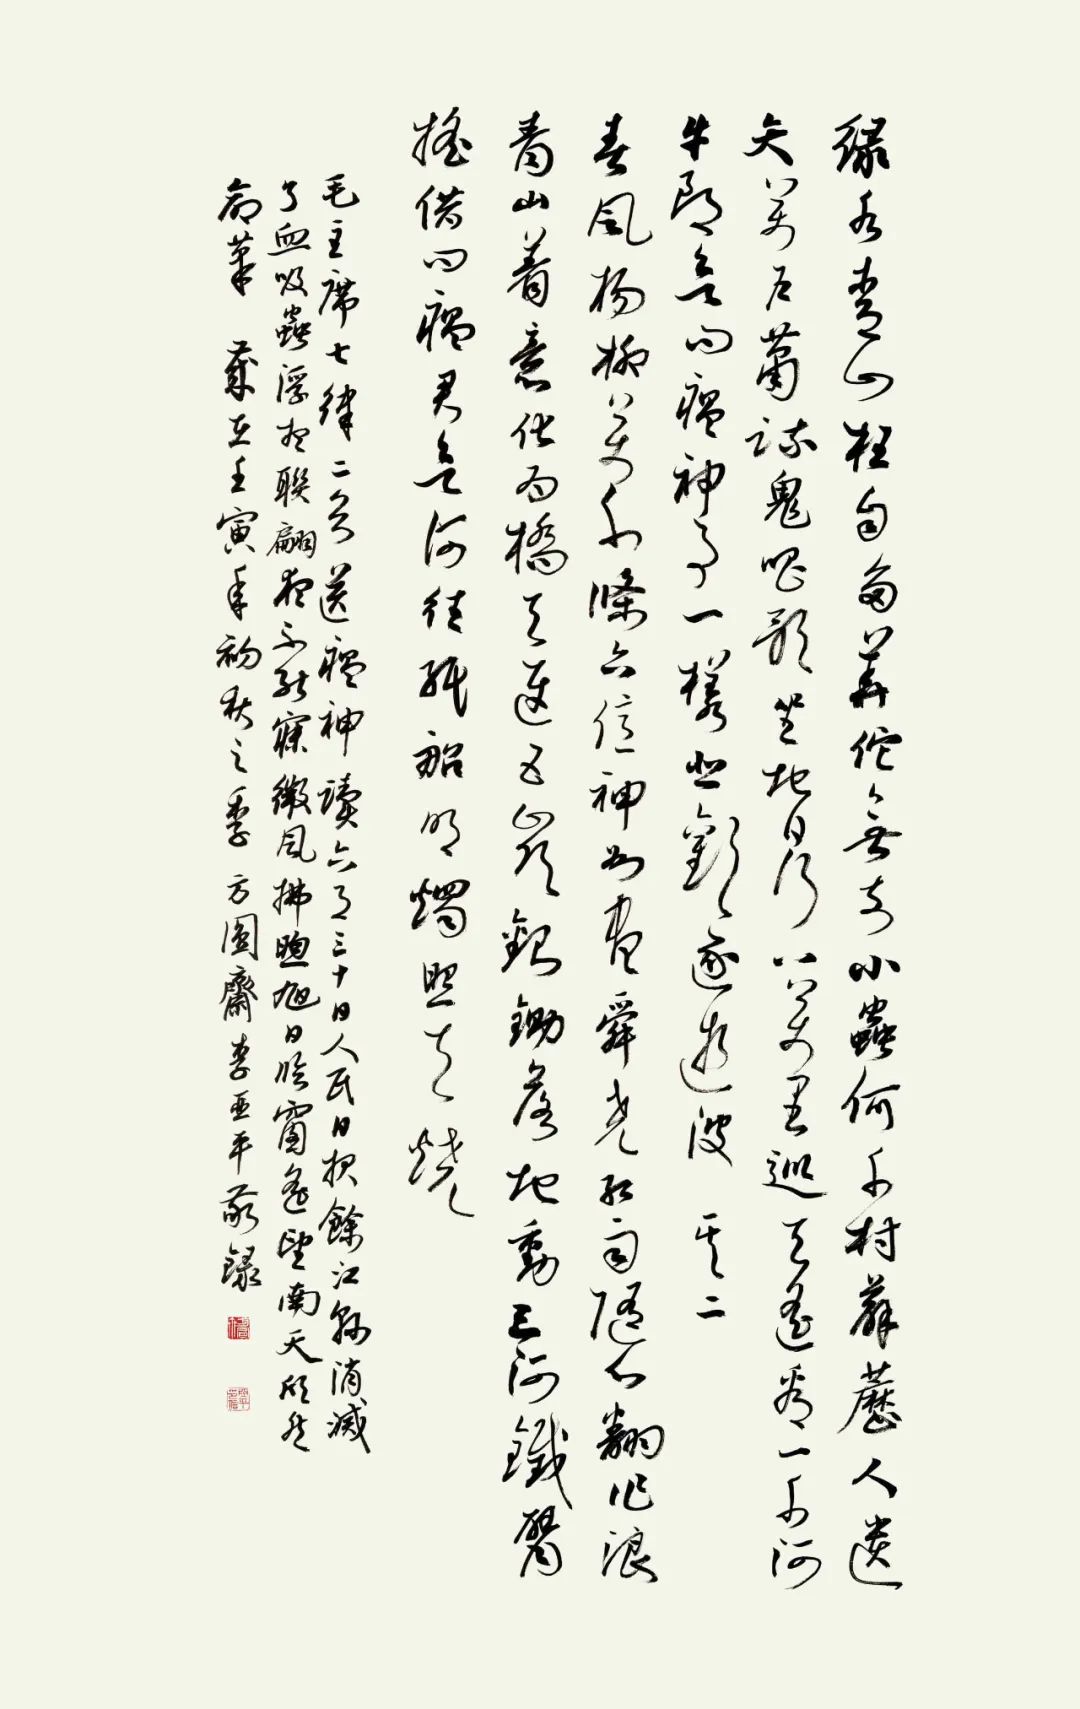 綠水青山枉自多華佗無奈小蟲何千村薜藶人遺
矢萬戶蕭疏鬼唱歌坐地日行八萬里巡天遙看一千河
牛郎欲問瘟神事一樣悲歡逐逝波 其二
春風楊柳萬千條六億神州盡舜堯紅雨隨心翻作浪
青山着意化為橋天連五嶺銀鋤落地動三河鐵臂
搖借問瘟君欲何往紙船明燭照天燒
毛主席七律二首送瘟神讀六月三十日人民日報餘江縣消滅
了血吸蟲浮想聯翩夜不能寐微風拂煦旭日臨窗遙望南天欣然
命筆 歲在壬寅年初秋之季方圓齋李亞平敬錄